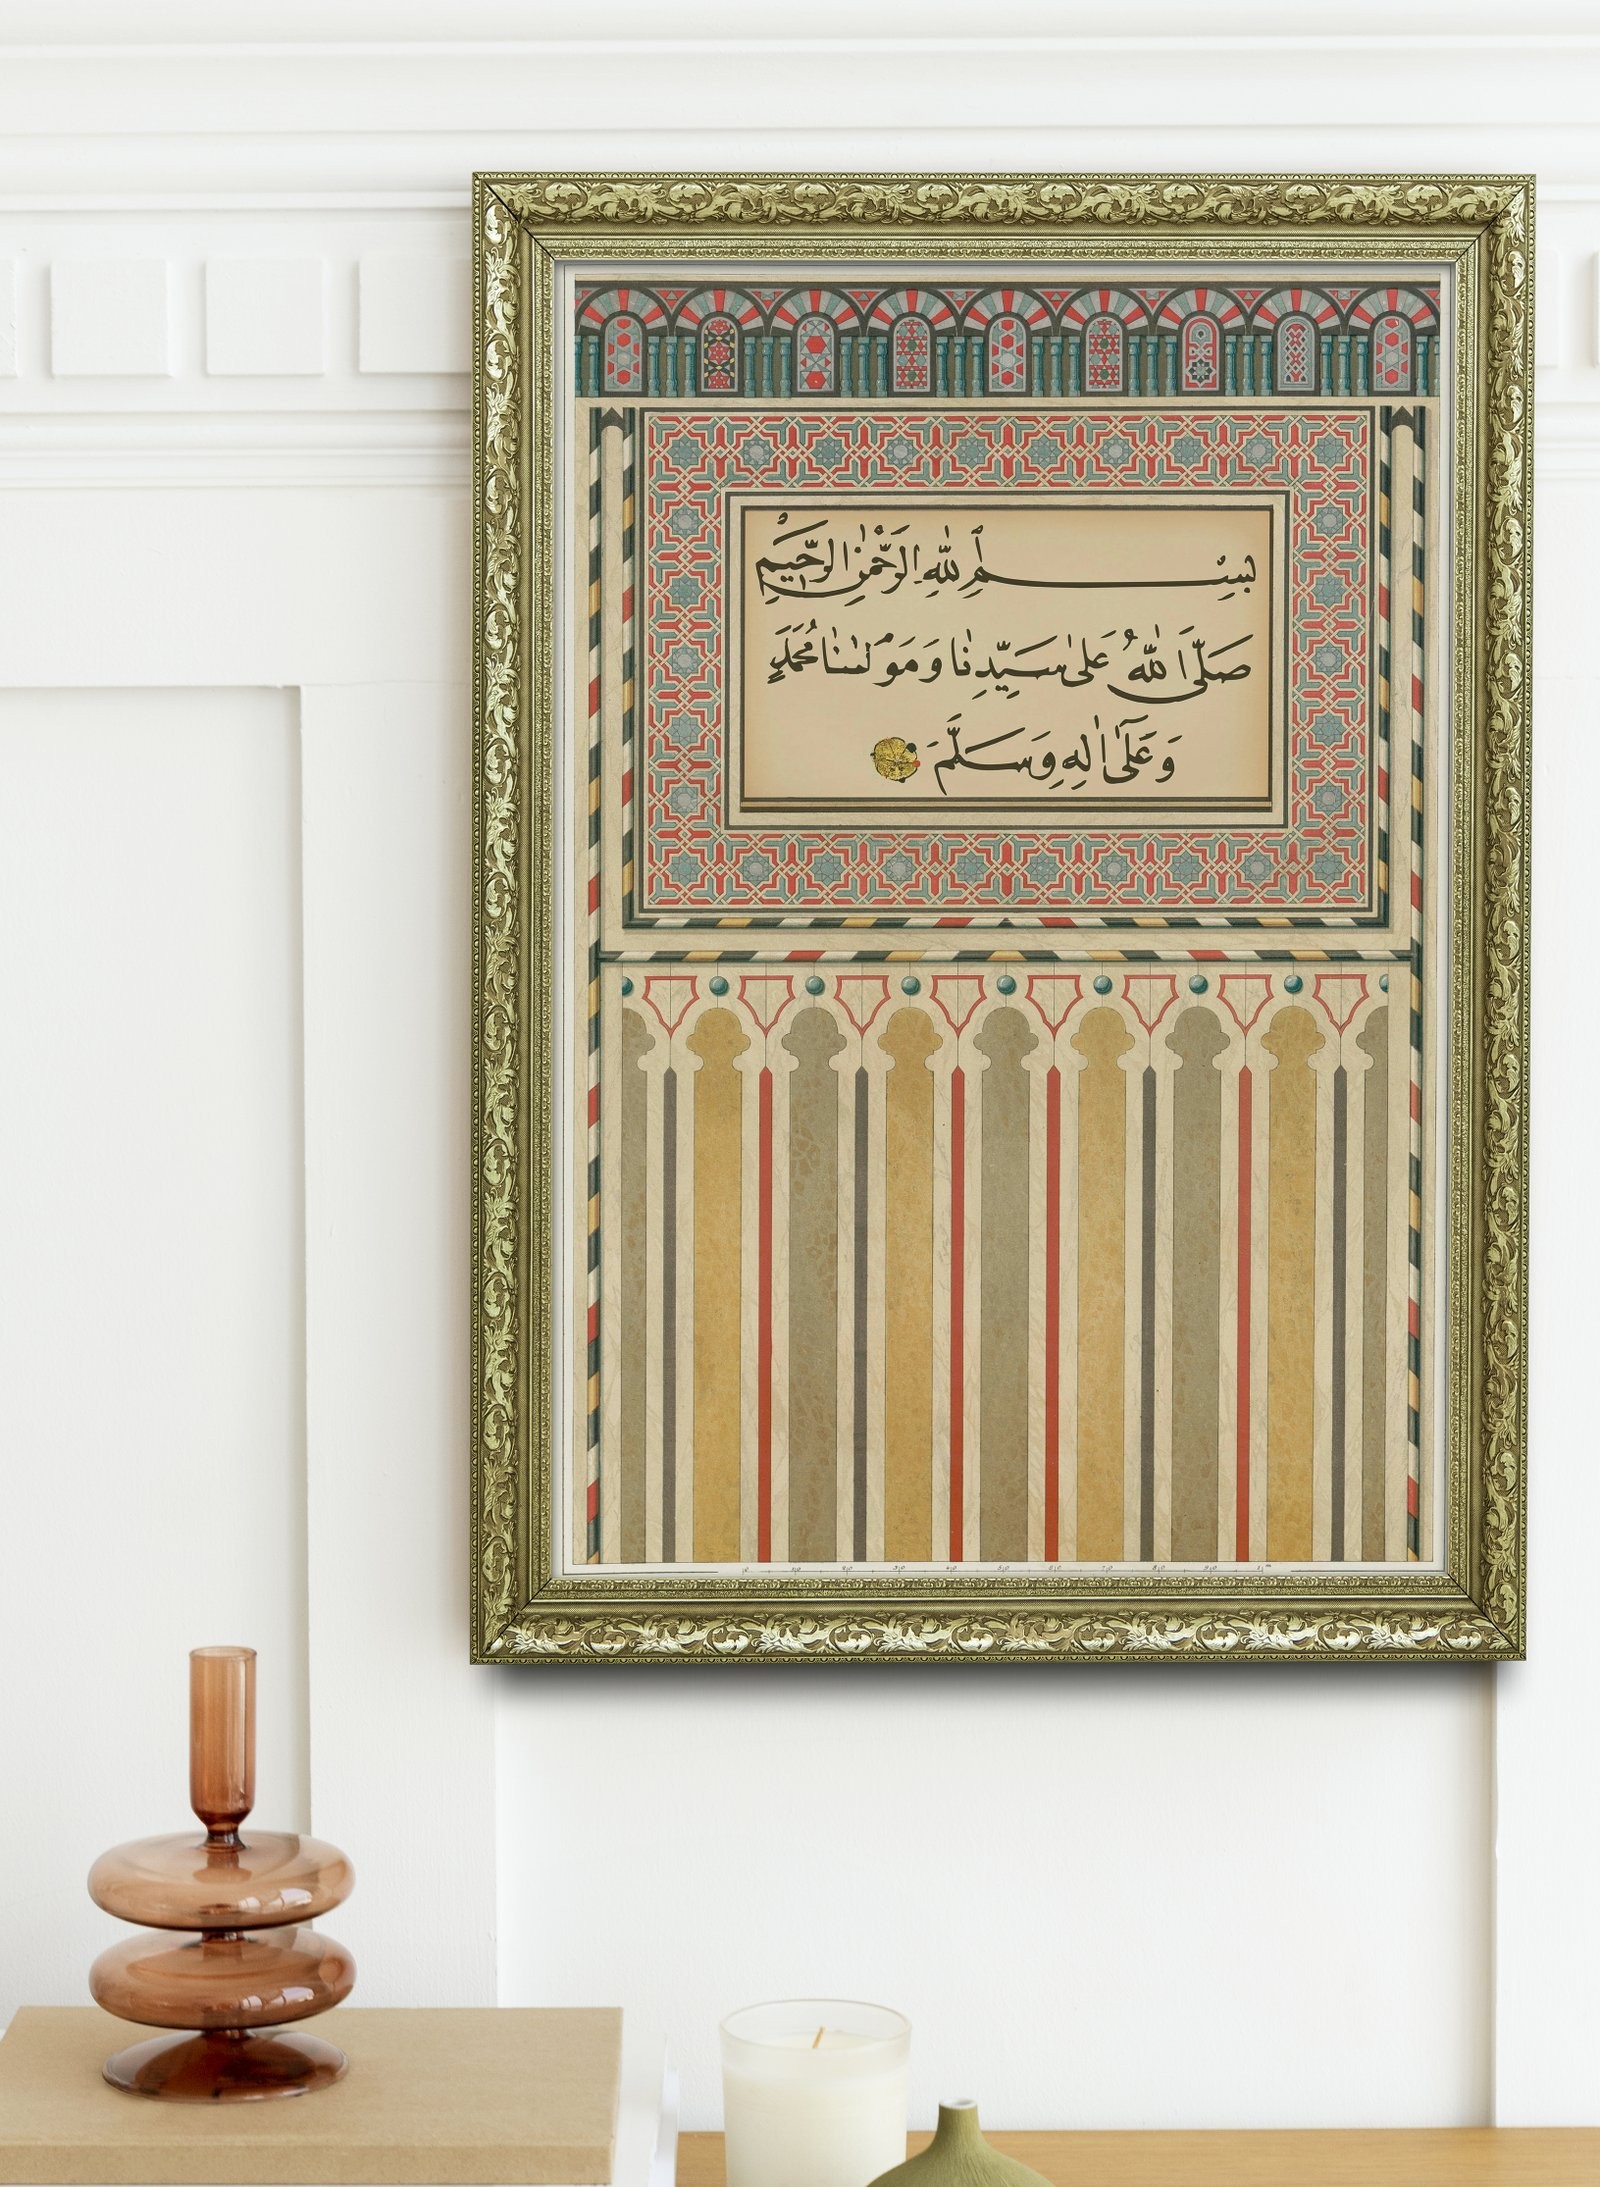 بِسْمِ ٱللَّهِ الرَّحْمَٰنِ الرَّحِيمِ
صَلَّى اَللَّهُ عَلَىٰ سَيِّدِنَا وَمَوْلَىٰنَا مُحَمَّدٍ
وَعَلَىٰٓ اٰلِهِ وَسَلَّمَ